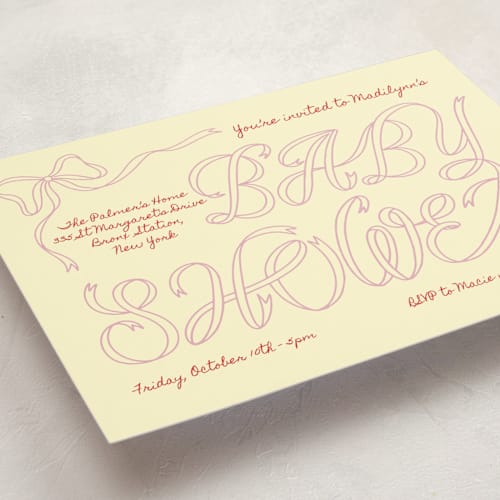 You're invited to Madilynn's
BABY
SHOWER
The Palmer's Home
335 St Margareta Drive
Bronx Station,
New York
Friday, October 10th - 5pm
RSVP to Macie